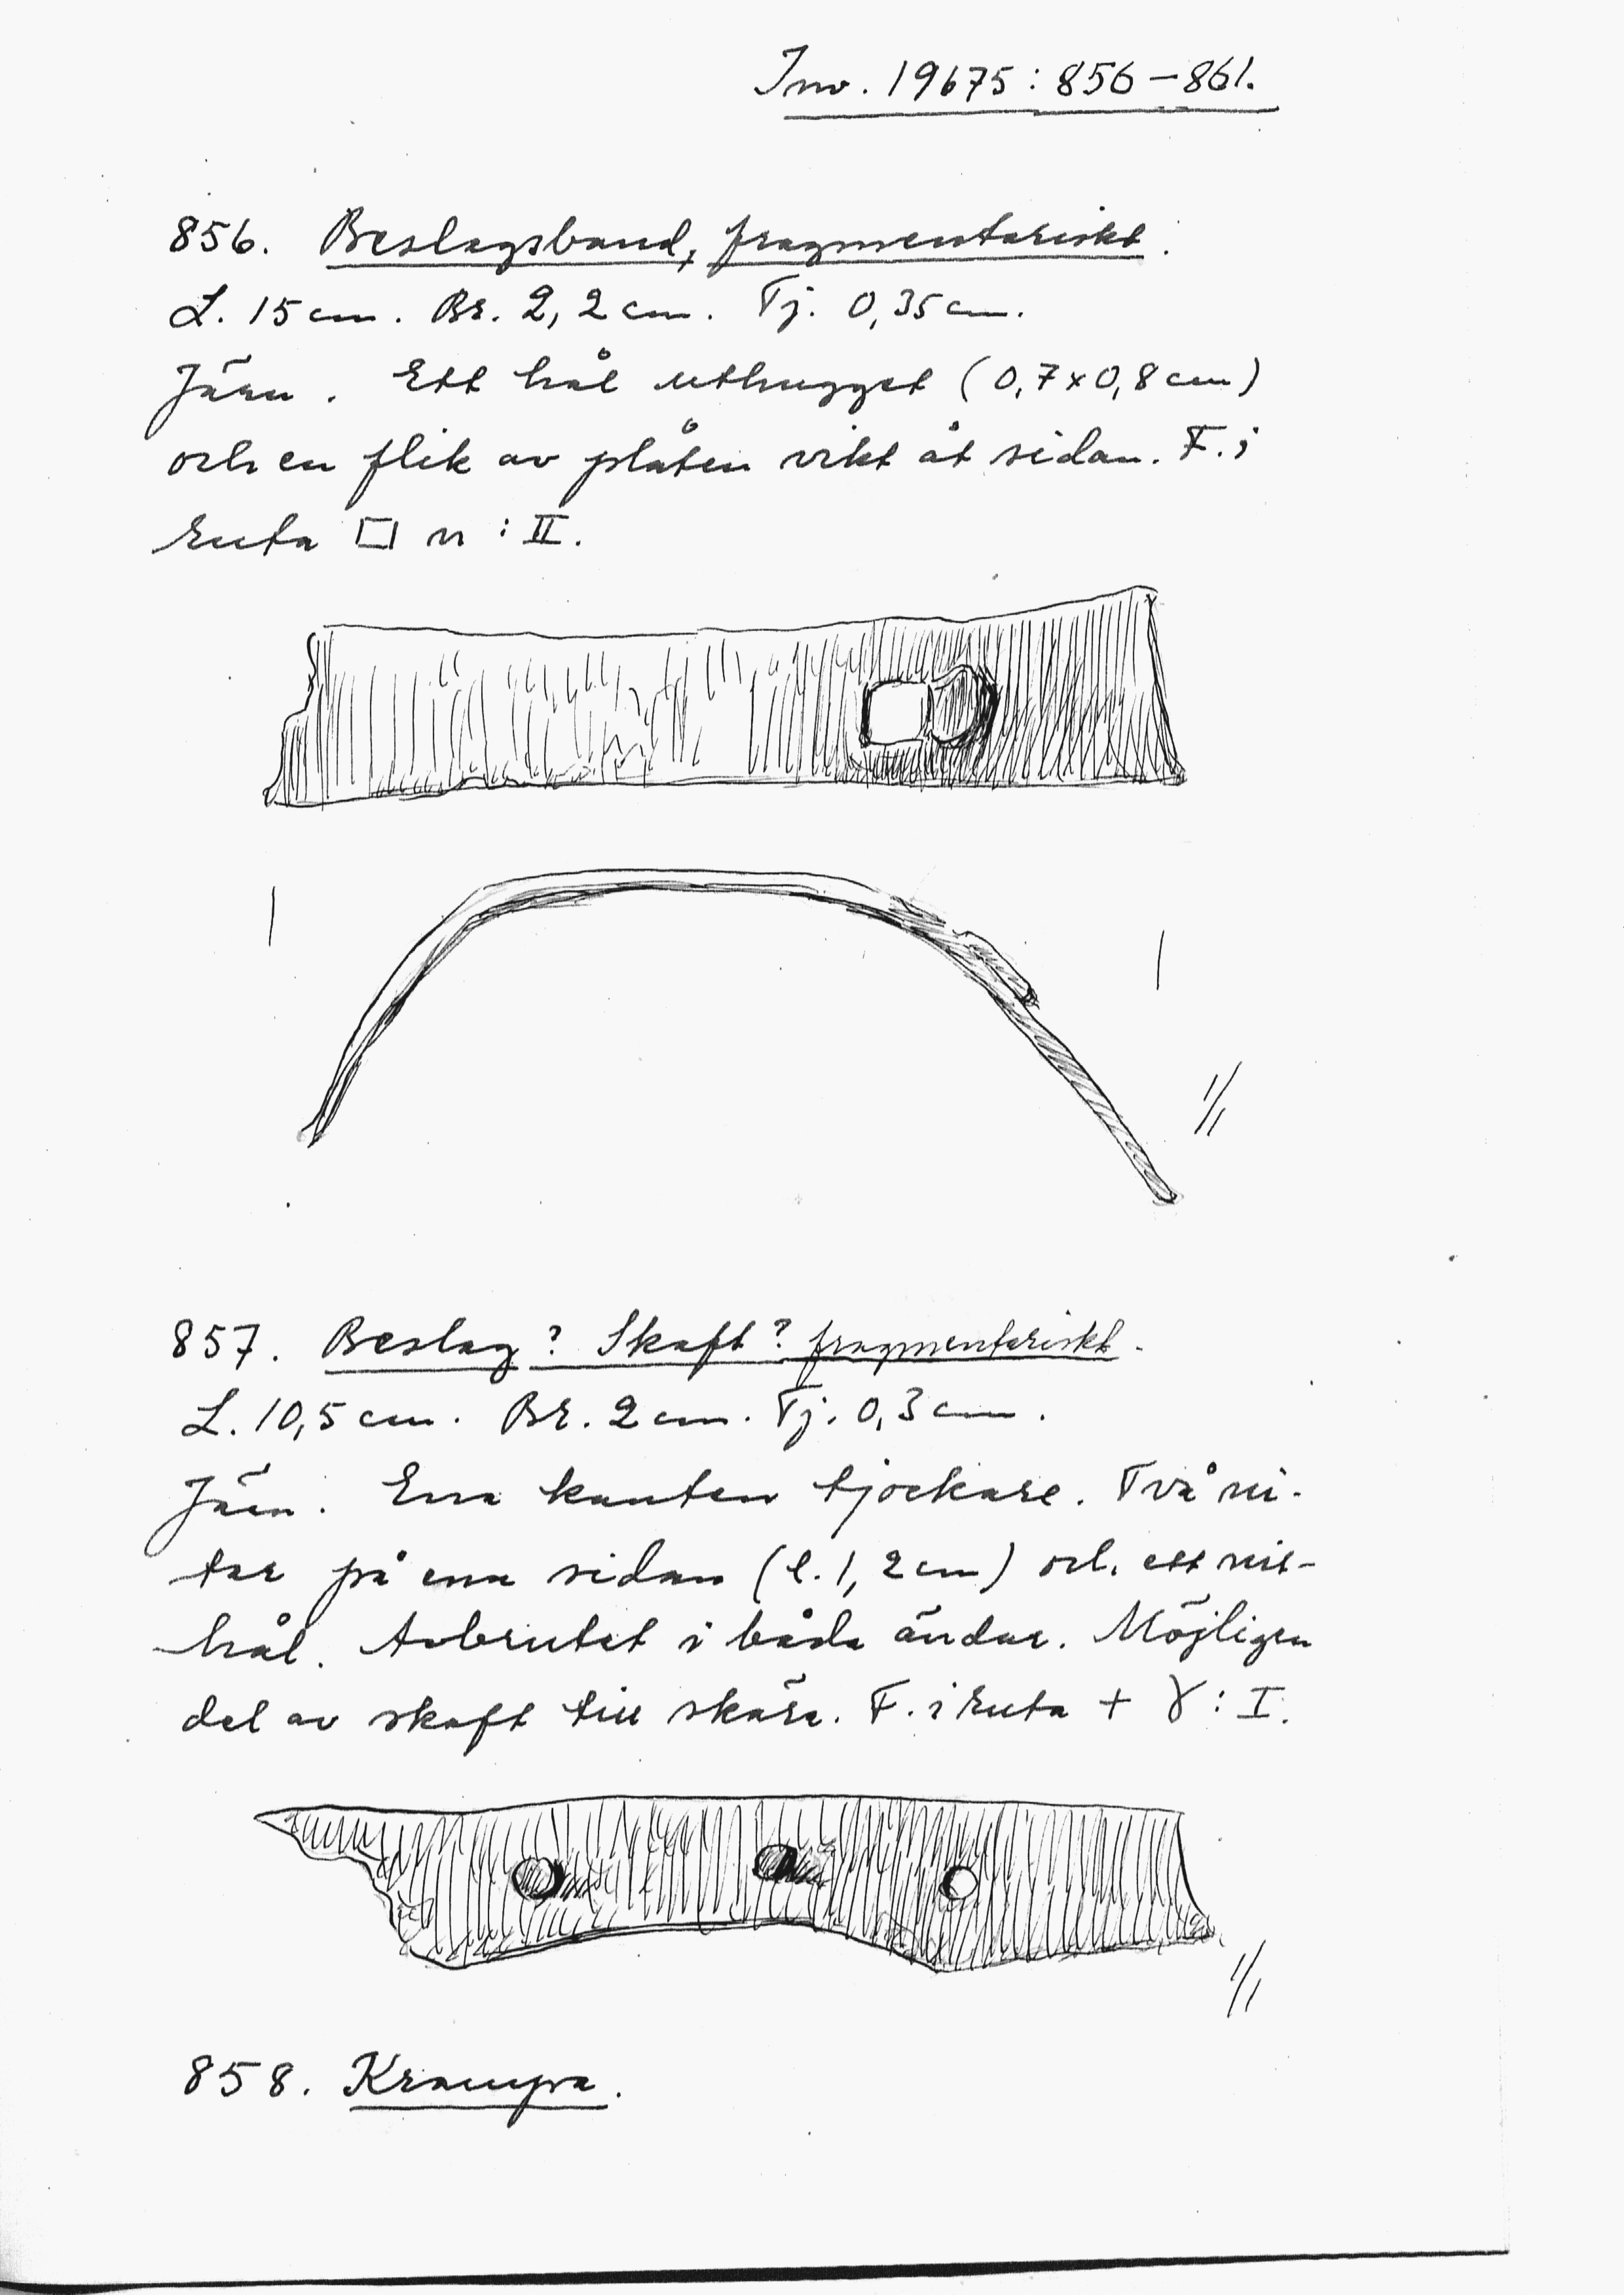 Inv. 19675:856–861.
856. Beslagsband, fragmentariskt.
L. 15 cm. Br. 2,2 cm. Tj. 0,35 cm.
Järn. Ett hål uthugget (0,7x0,8 cm)
och en flik av plåten vikt åt sidan. F. i
ruta □ n : II.
1/1
857. Beslag? Skaft? fragmentariskt.
L. 10,5 cm. Br. 2 cm. Tj. 0,3 cm.
Järn. Ena kanten tjockare. Två ni-
tar på ena sidan (l. 1,2 cm) och ett nit-
hål. Avbrutet i båda ändar. Möjligen
del av skaft till skära. F. i ruta + γ : I.
1/1
858. Krampa.